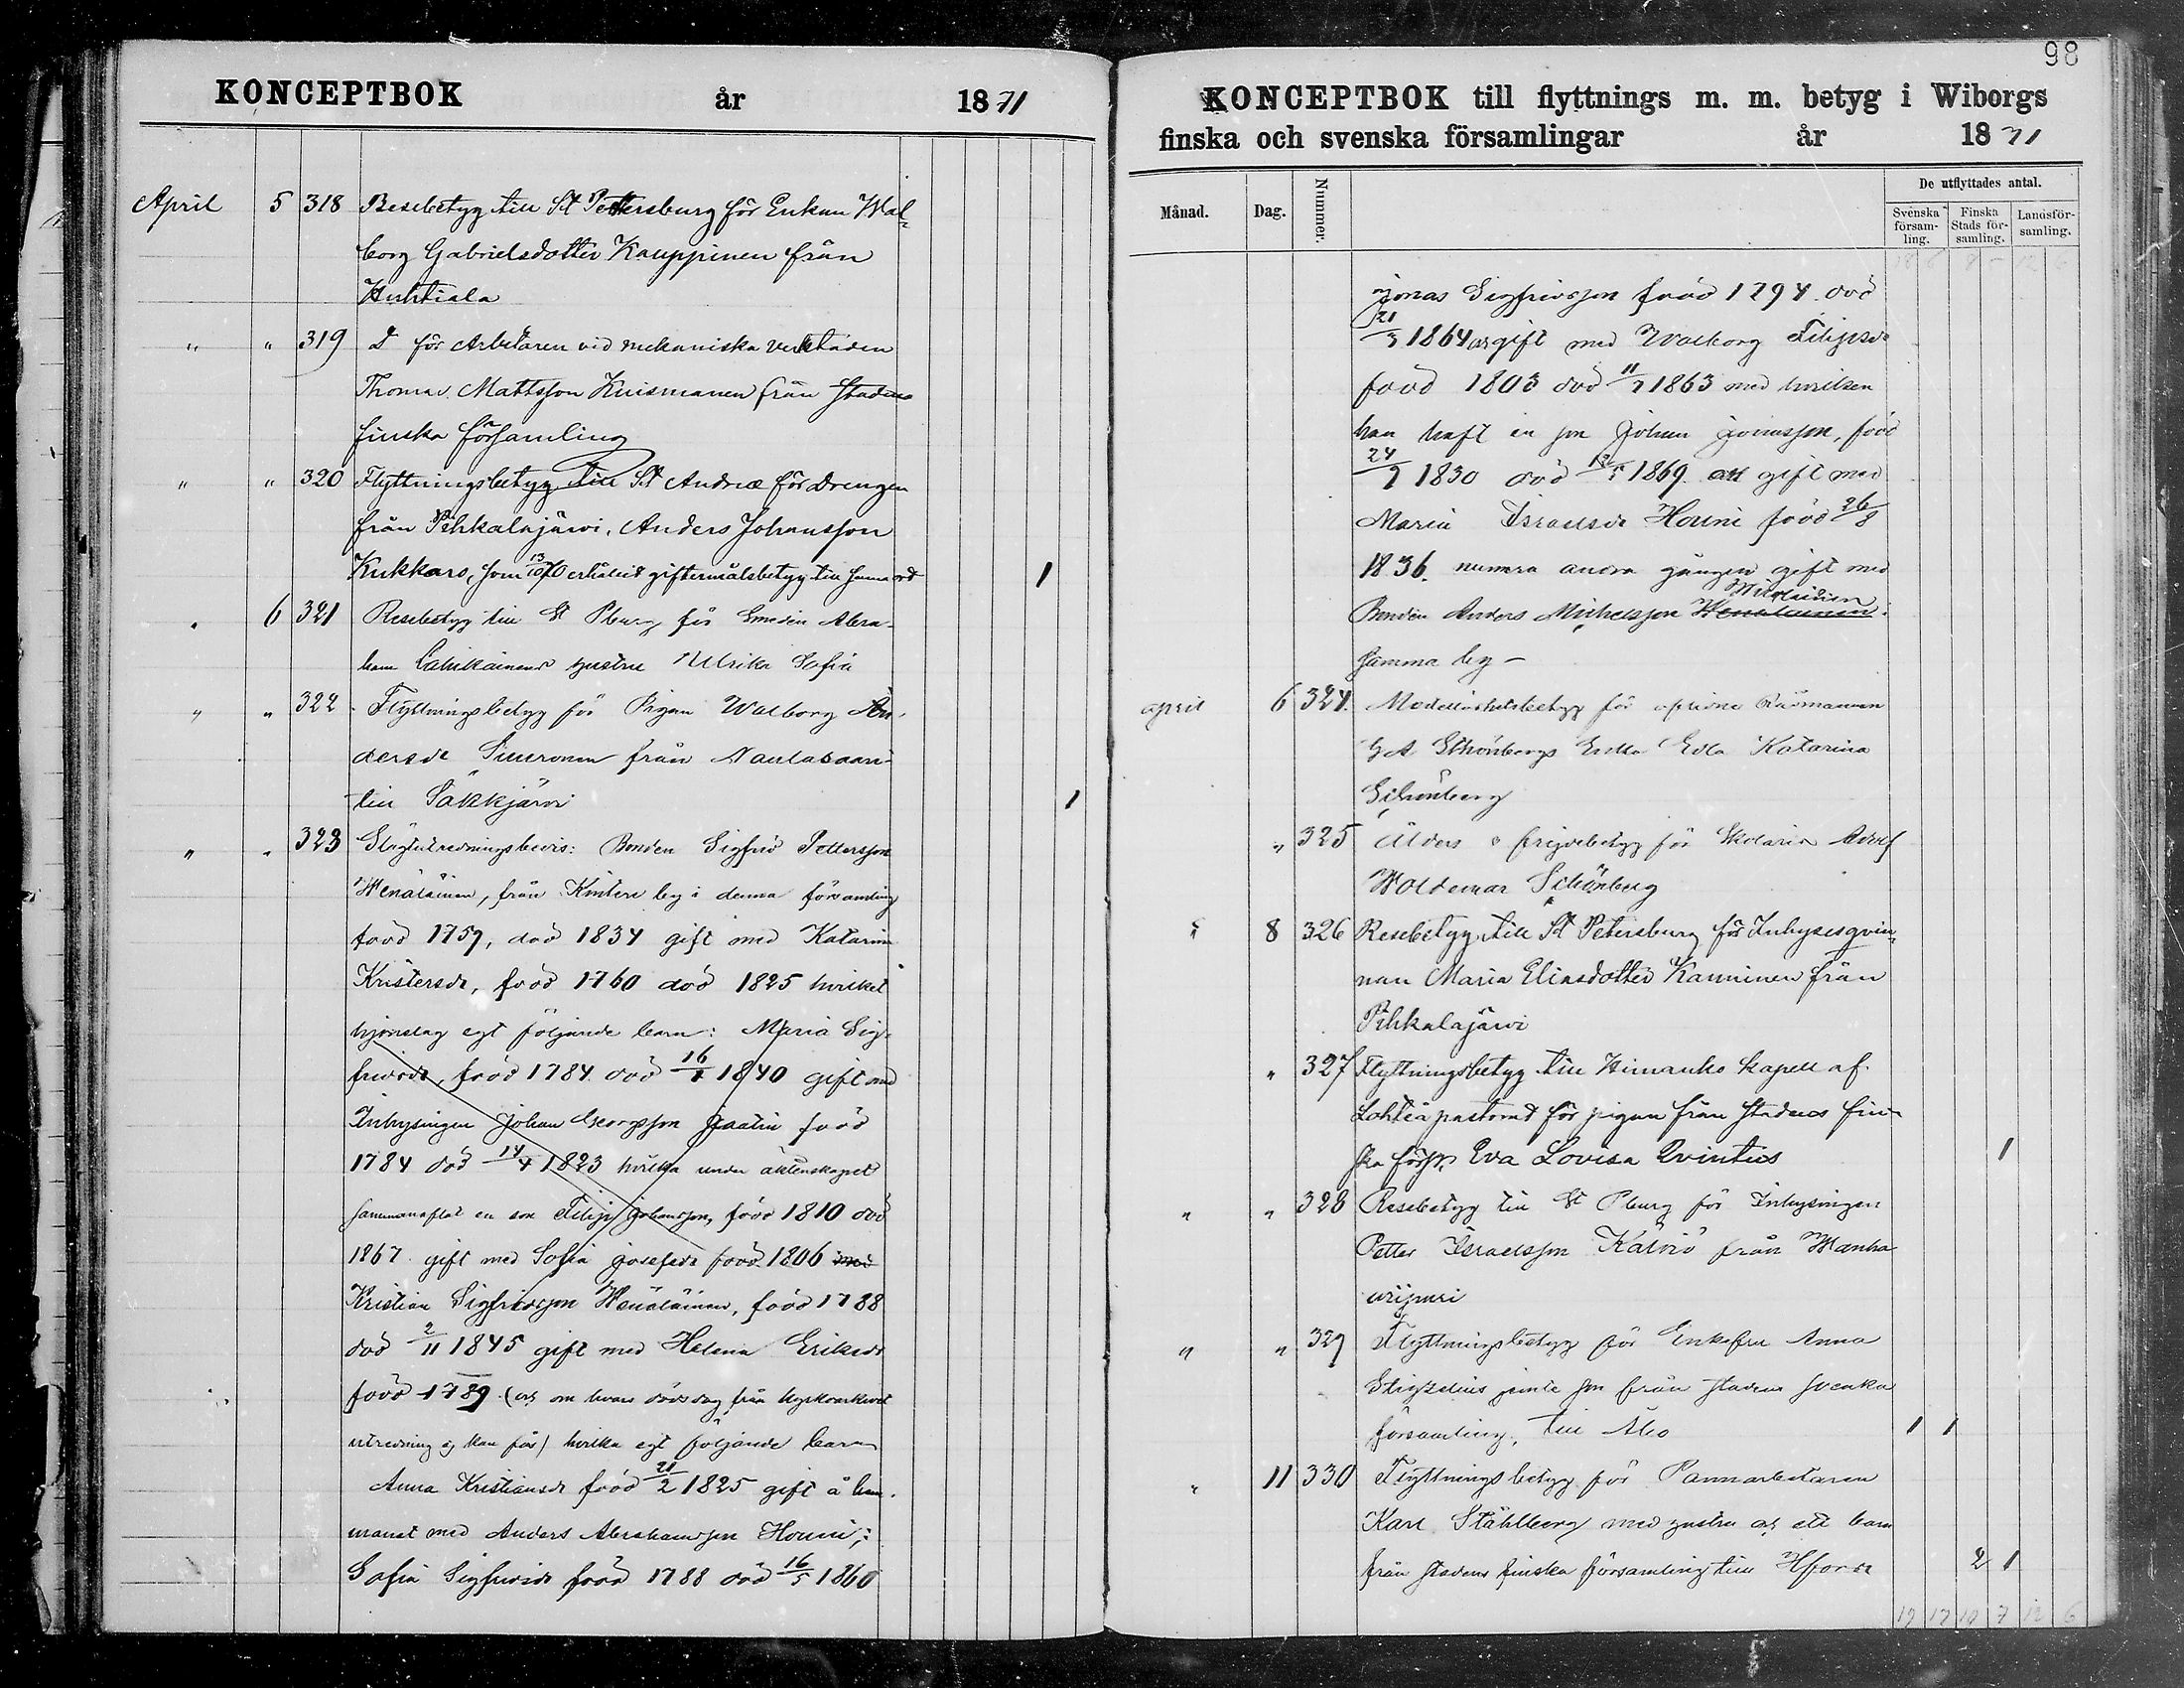 KONCEPTBOK år 1871
April 5 318 Resebetyg till St Pettersburg för Enkan Wal-
borg Gabrielsdotter Kauppinen från
Huhtiala
" " 319 D för Arbetaren vid mekaniska verkstaden
Thomas Mattsson Kuismanen från stadens
finska församling
" " 320 Flyttningsbetyg till St Andreæ för Drengen
från Pihkalajärvi, Anders Johansson
Kukkaro, som 13/10 70 erhållit giftermålsbetyg till samma ort 1
" 6 321 Resebetyg till St Pburg för Smeden Abra-
ham hustru Ulrika Sofia
" " 322 Flyttningsbetyg för Pigan Walborg An-
dersdr från Nautasaari
till Säkkjärvi 1
" " 323 Slägtutredningsbevis: Bonden Sigfrid Pettersson
Wenäläinen, från Kintere by i denna församling
född 1757, död 1834 gift med Katarina
Kristersdr, född 1760 död 1825 hvilket
hjonelag egt följande barn: Maria Sig-
fridsdr, född 1784 död 16/4 1840 gift med
Inhysingen Johan Georgsson född
1784 död 14/4 1823 hvilka under äktenskapet
sammanaflat en son Filip Johansson, född 1810 död
1867 gift med Sofia Josefsdr född 1806 med
Kristian Sigfridsson Wenäläinen, född 1788
död 2/11 1845 gift med Helena Eriksdr
född 1789 (och om hvars dödsdag från kyrkoarkivet
utredning ej kan fås) hvilka egt följande barn
Anna Kristiansdr född 21/2 1825 gift å hem-
manet med Anders Abrahamsson Houni;
Sofia Sigfridsdr född 1788 död 16/5 1860
98
KONCEPTBOK till flyttnings m. m. betyg i Wiborgs
finska och svenska församlingar år 1871
Månad. Dag. Nummer. De utflyttades antal.
Svenska församling. Finska Stads församling. Landsförsamling.
Jonas Sigfridsson född 1794 död
21/3 1864 och gift med Walborg Filipsdr
född 1803 död 11/7 1863 med hvilken
han haft en son Johan Jonasson, född
24/7 1830 död 12/5 1869 och gift med
Maria Israelsdr Houni född 26/8
1836. numera andra gången gift med
Bonden Anders Michelsson Wenäläinen
samma by –
April 6 324. Medellöshetsbetyg för aflidne Rådmannen
G A Schönbergs Enka Edla Katarina
Schönberg
" 325 Ålders o frejdebetyg för Skolaren Adolf
Woldemar Schönberg
" 8 326 Resebetyg till St Petersburg för Inhysesqvin-
nan Maria Eliasdotter Kauninen från
Pihkalajärvi
" 327 Flyttningsbetyg till Himanko kapell af
Lohteå pastorat för pigan från stadens fin-
ska förs. Eva Lovisa Qvintus 1
" " 328 Resebetyg till St Pburg för Inhysingen
Petter Israelsson Kälviö från Wanha
" " 329 Flyttningsbetyg för Enkefru Anna
Stigzelius jemte son från stadens svenska
församling, till Åbo 1 1
" 11 330 Flyttningsbetyg för
Karl Ståhlberg med hustru och ett barn
från stadens finska församling till Hfors 2 1
19 17 10 7 12 6